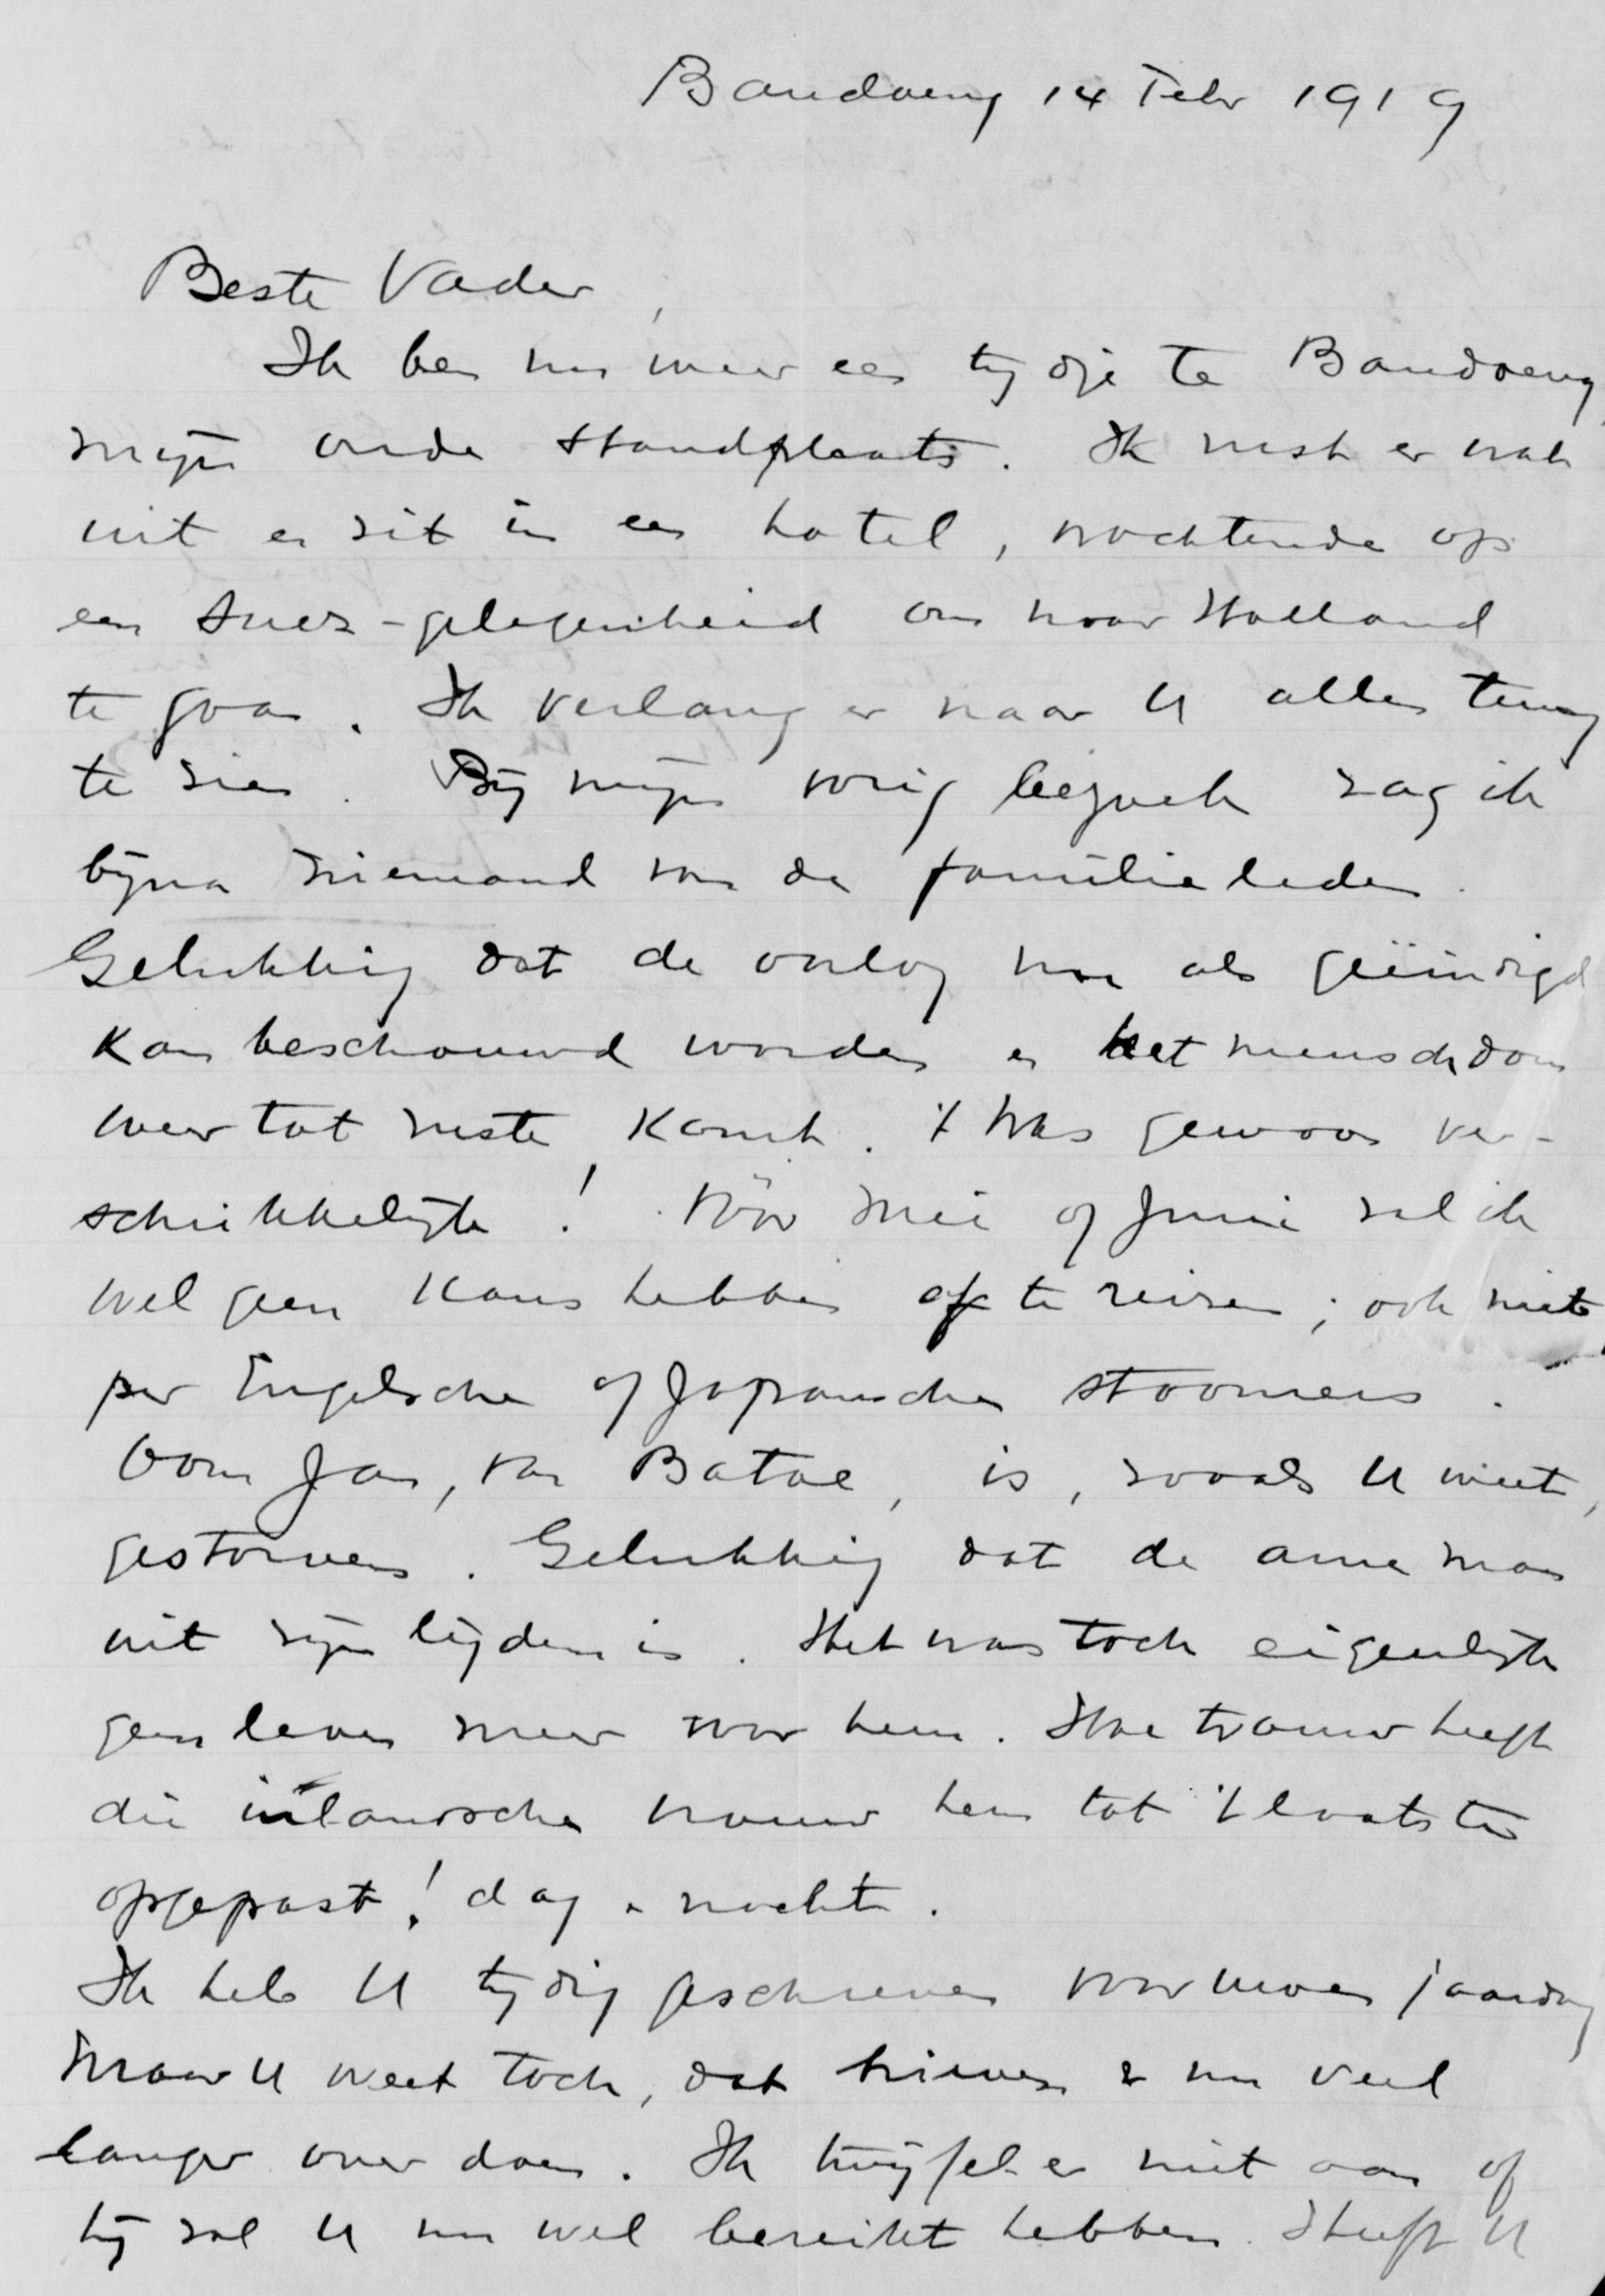 Bandoeng 14 Febr 1919
Beste Vader,
Ik ben nu weer een tijdje te Bandoeng,
mijn oude standplaats. Ik rust er wat
uit en zit in een hotel, wachtende op
een Suez-gelegenheid om naar Holland
te gaan. Ik verlang er naar U allen terug
te zien. Bij mijn vorig bezoek zag ik
bijna niemand van de familieleden.
Gelukkig dat de oorlog nu als geëindigd
kan beschouwd worden en het menschdom
weer tot ruste komt. 't Was gewoon ver-
schrikkelijk! Vóór Mei of Juni zal ik
wel geen kans hebben af te reizen; ook niet
per Engelsche of Japansche stoomers.
Oom Jan, van Batoe, is, zooals U weet,
gestorven. Gelukkig dat de arme man
uit zijn lijden is. Het was toch eigenlijk
geen leven meer voor hem. Hoe trouw heeft
die inlandsche vrouw hem tot 't laatste
opgepast! dag en nacht.
Ik heb U tijdig geschreven voor uwen jaardag
maar U weet toch, dat brieven er nu veel
langer over doen. Ik twijfel er niet aan of
hij zal U nu wel bereikt hebben. Heeft U